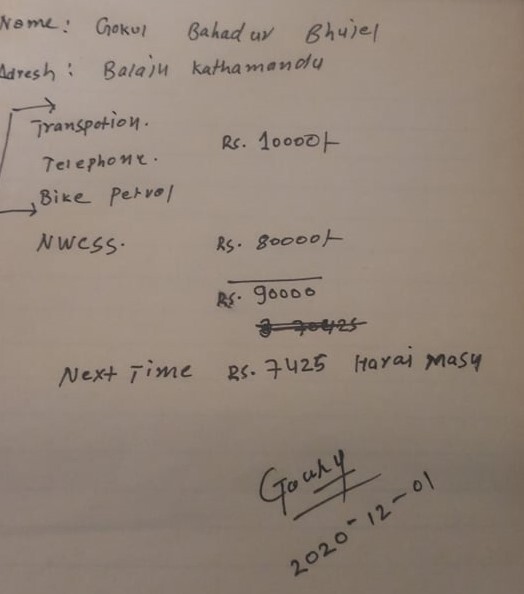 Name: Gokul Bahadur Bhujel
Adresh: Balaju Kathamandu
Transpotion.
Rs. 10000/-
Telephone.
Bike Petrol
NWCSS. Rs. 80000/-
Rs. 90000
Next Time Rs. 7425 Harai masu
2020-12-01